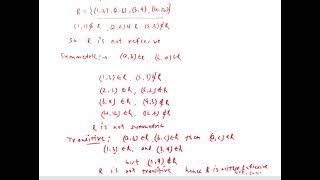 R = {(1,3), (2,6), (3,9), (4,12)}
(1,1) ∉ R, (2,2) ∉ R, (3,3) ∉ R
So R is not reflexive
Symmetric:- (a,b) ∈ R, (b,a) ∈ R
(1,3) ∈ R, (3,1) ∉ R
(2,6) ∈ R, (6,2) ∉ R
(3,9) ∈ R, (9,3) ∉ R
(4,12) ∈ R, (12,4) ∉ R
R is not symmetric
Transitive: (a,b) ∈ R, (b,c) ∈ R then (a,c) ∈ R
(1,3) ∈ R, and (3,9) ∈ R
but (1,9) ∉ R
R is not transitive hence R is neither reflexive